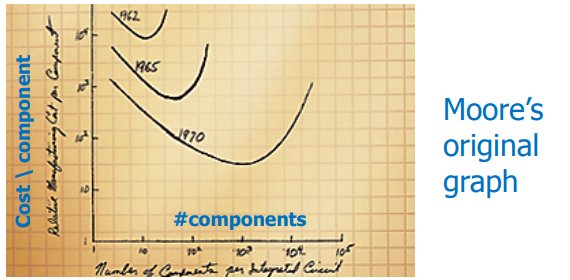 Cost \ component
Relative Manufacturing Cost per Component
1962
1965
1970
10⁴
10³
10²
10
1
1
10
10²
10³
10⁴
10⁵
#components
Number of Components per Integrated Circuit
Moore's
original
graph